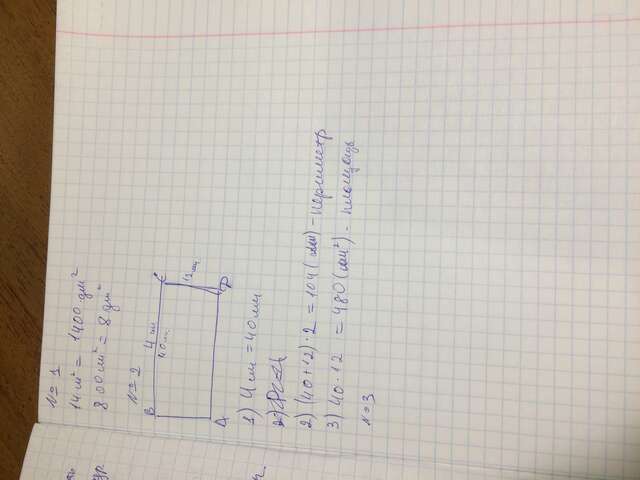 № 1
14 м² = 1400 дм²
800 см² = 8 дм²
№ 2
B 4 см C
40 мм
12 мм
A D
1) 4 см = 40 мм
2) (40+12)·2 = 104 (мм) - периметр
3) 40·12 = 480 (мм²) - площадь
№ 3